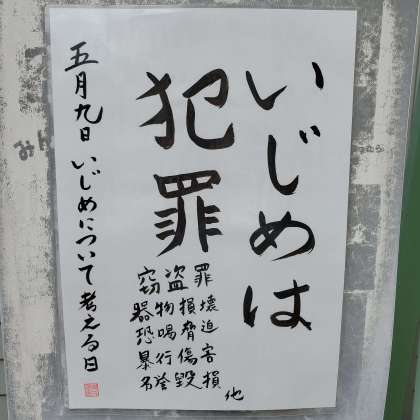 いじめは
犯罪
窃盗罪
器物損壊
恐喝脅迫
暴行傷害
名誉毀損
他
五月九日 いじめについて考える日